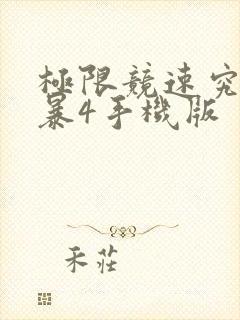 極限競速究
暴4手機版
禾莊